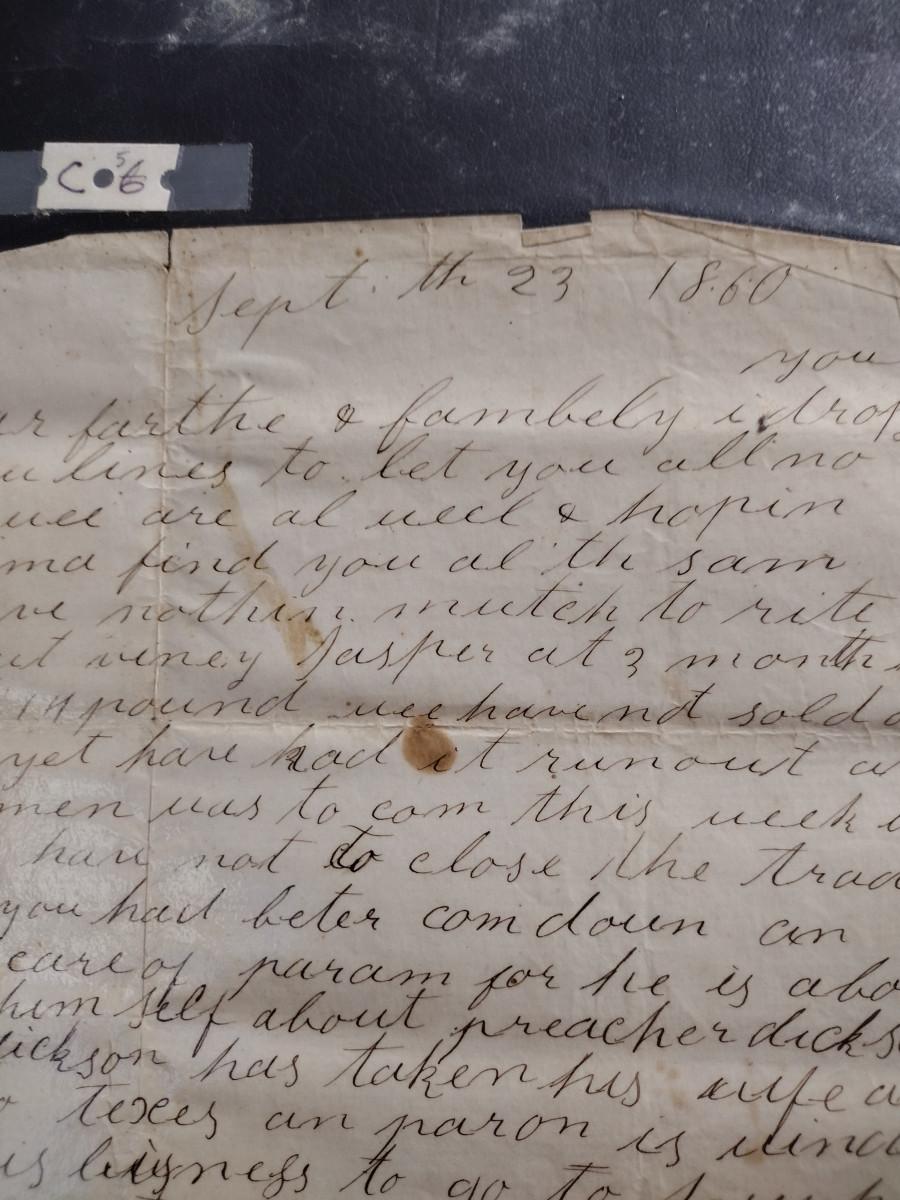 C 5 6
Sept. th 23 1860
you
farthe & fambely i drop
lines to let you all no
uee are al uell & hopin
ma find you al th sam
ve nothin mutch to rite
ut viney Jasper at 3 month
14 pound uee have not sold
yet have had it runout
men uas to com this ueek
have not to close the trad
you had beter com doun an
care of param for he is abo
him self about preacher dicks
dickson has taken his uife a
texes an paron is uind
is to go to